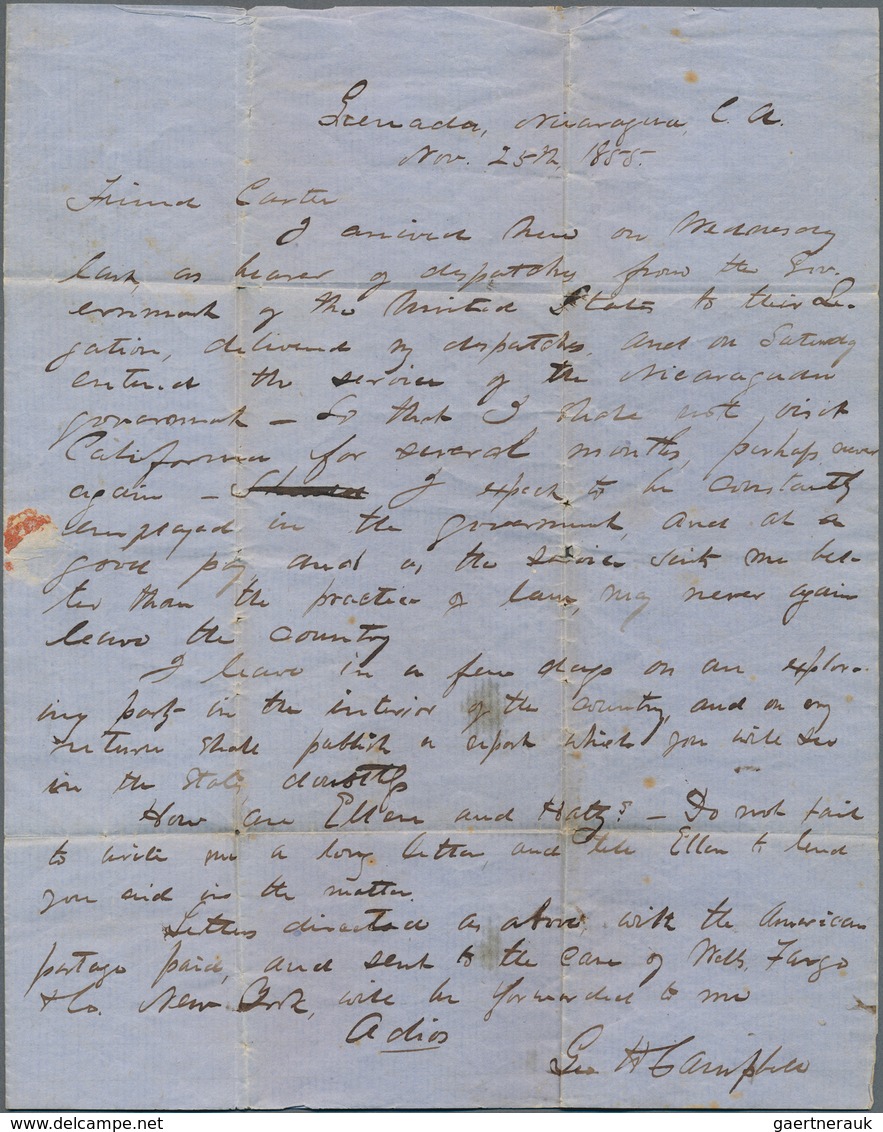 Grenada, Nicaragua, C. A.
Nov. 25th, 1855.
Friend Carter
I arrived here on Wednesday
last, as bearer of despatches from the Gov-
ernment of the United States to their Le-
gation, delivered my despatches, and on Saturday
entered the service of the Nicaraguan
government – So that I shall not visit
California for several months, perhaps never
again – I expect to be constantly
employed in the government, and at a
good pay and as the service suits me bet-
ter than the practice of law, may never again
leave the country
I leave in a few days on an explor-
ing party in the interior of the country, and on my
return shall publish a report which you will see
in the States doubtless
How are Ellen and Hatty? – Do not fail
to write me a long letter, and tell Ellen to lend
you aid in the matter.
Letters directed as above, with the American
postage paid, and sent to the care of Wells, Fargo
& Co. New York, will be forwarded to me
Adios
Geo H Campbell
gaertnerauk